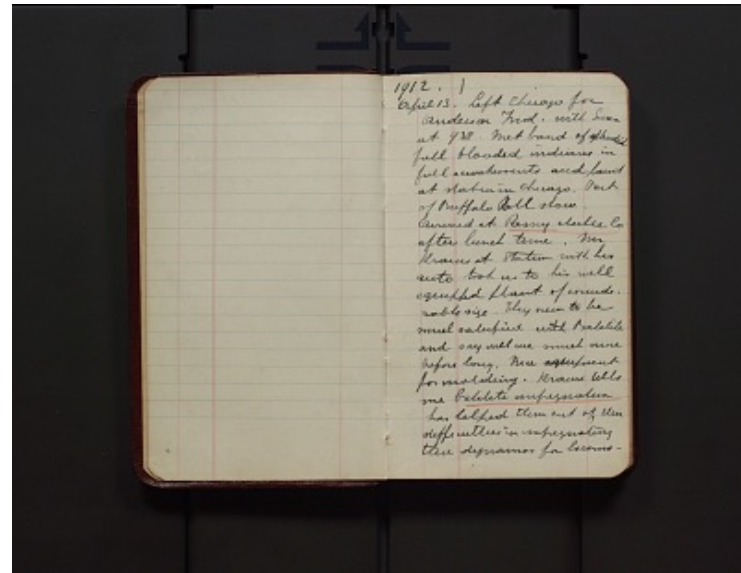 1912. 1
April 13. Left Chicago for
Anderson Ind. with Swan
at 9 38. Met band of splendid
full blooded indians in
full accoutrements and paint
at station in Chicago. Part
of Buffalo Bill show.
Arrived at Remy electric Co
after lunch time. Mr
Kraus at Station with his
auto took us to his well
equipped plant of conside-
rable size. They seem to be
much satisfied with Bakelite
and say will use much more
before long. New equipment
for molding. Kraus tells
me Bakelite impregnation
has helped them out of their
difficulties in impregnating
there dynamos for locomo-